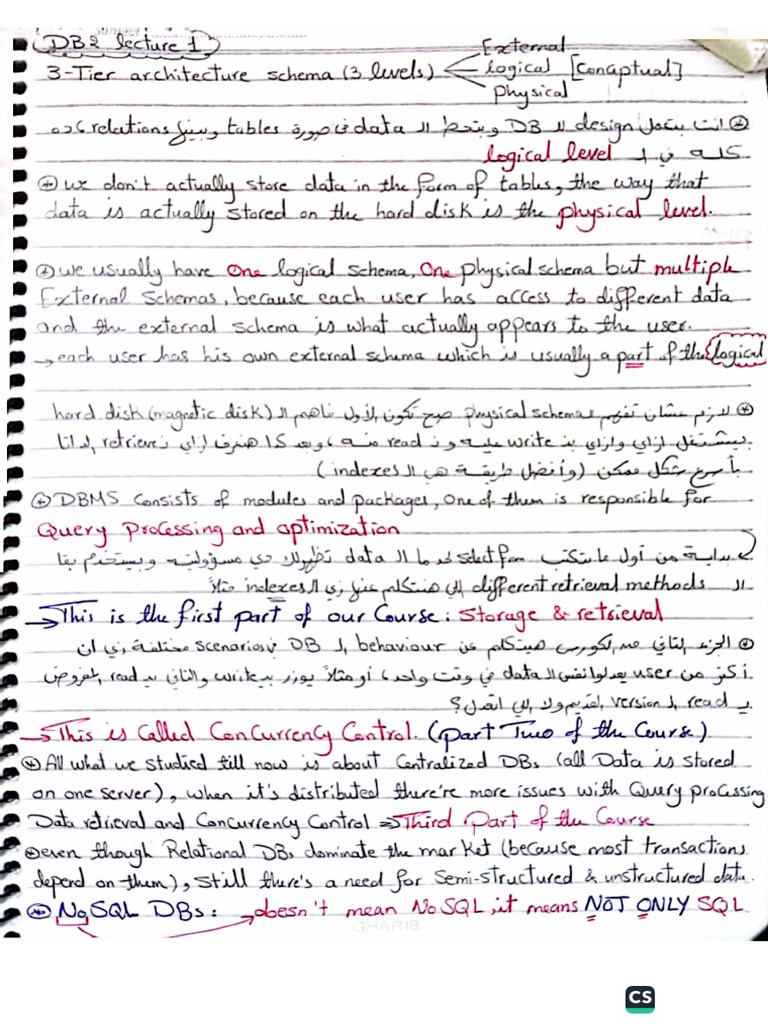 DB2 lecture 1
External
3-Tier architecture schema (3 levels) logical [Conaptual]
physical
انت بتعمل design لـ DB وبتحط الـ data في صورة tables وبينهم relations، ده
كله في الـ logical level
we don't actually store data in the form of tables, the way that
data is actually stored on the hard disk is the physical level.
we usually have One logical schema, One physical schema but multiple
External schemas, because each user has access to different data
and the external schema is what actually appears to the user.
→ each user has his own external schema which is usually a part of the logical
لازم عشان تفهم physical schema صح تكون الأول فاهم الـ hard disk (magnetic disk)
بيشتغل ازاي وازاي بنـ write عليه و نـ read منه، وبعد كدا هنعرف ازاي نـ retrieve الداتا
بأسرع شكل ممكن (وأفضل طريقة هي الـ indexes)
DBMS consists of modules and packages, one of them is responsible for
Query Processing and optimization
بداية من أول ما بتكتب select from لحد ما الـ data تظهرلك دي مسؤوليته وبيستخدم بقا
الـ different retrieval methods إلي هنتكلم عنها زي الـ indexes مثلاً
→ This is the first part of our Course: Storage & retrieval
الجزء التاني من الكورس هيتكلم عن behaviour الـ DB في scenarios مختلفة زي ان
أكتر من user يعدلوا نفس الـ data في وقت واحد، أو مثلاً يوزر بيـ write والتاني بيـ read، المفروض
يـ read الـ version القديم ولا إلي اتعدل؟
→ This is Called ConCurrenCy Control. (part Two of the Course)
All what we studied till now is about Centralized DBs (all Data is stored
on one server), when it's distributed there're more issues with Query processing
Data retrieval and ConCurrency Control ⇒ Third Part of the Course
even though Relational DBs dominate the market (because most transactions
depend on them), still there's a need for semi-structured & unstructured data.
NoSQL DBs: → doesn't mean No SQL, it means NOT ONLY SQL
GHARIB
CS